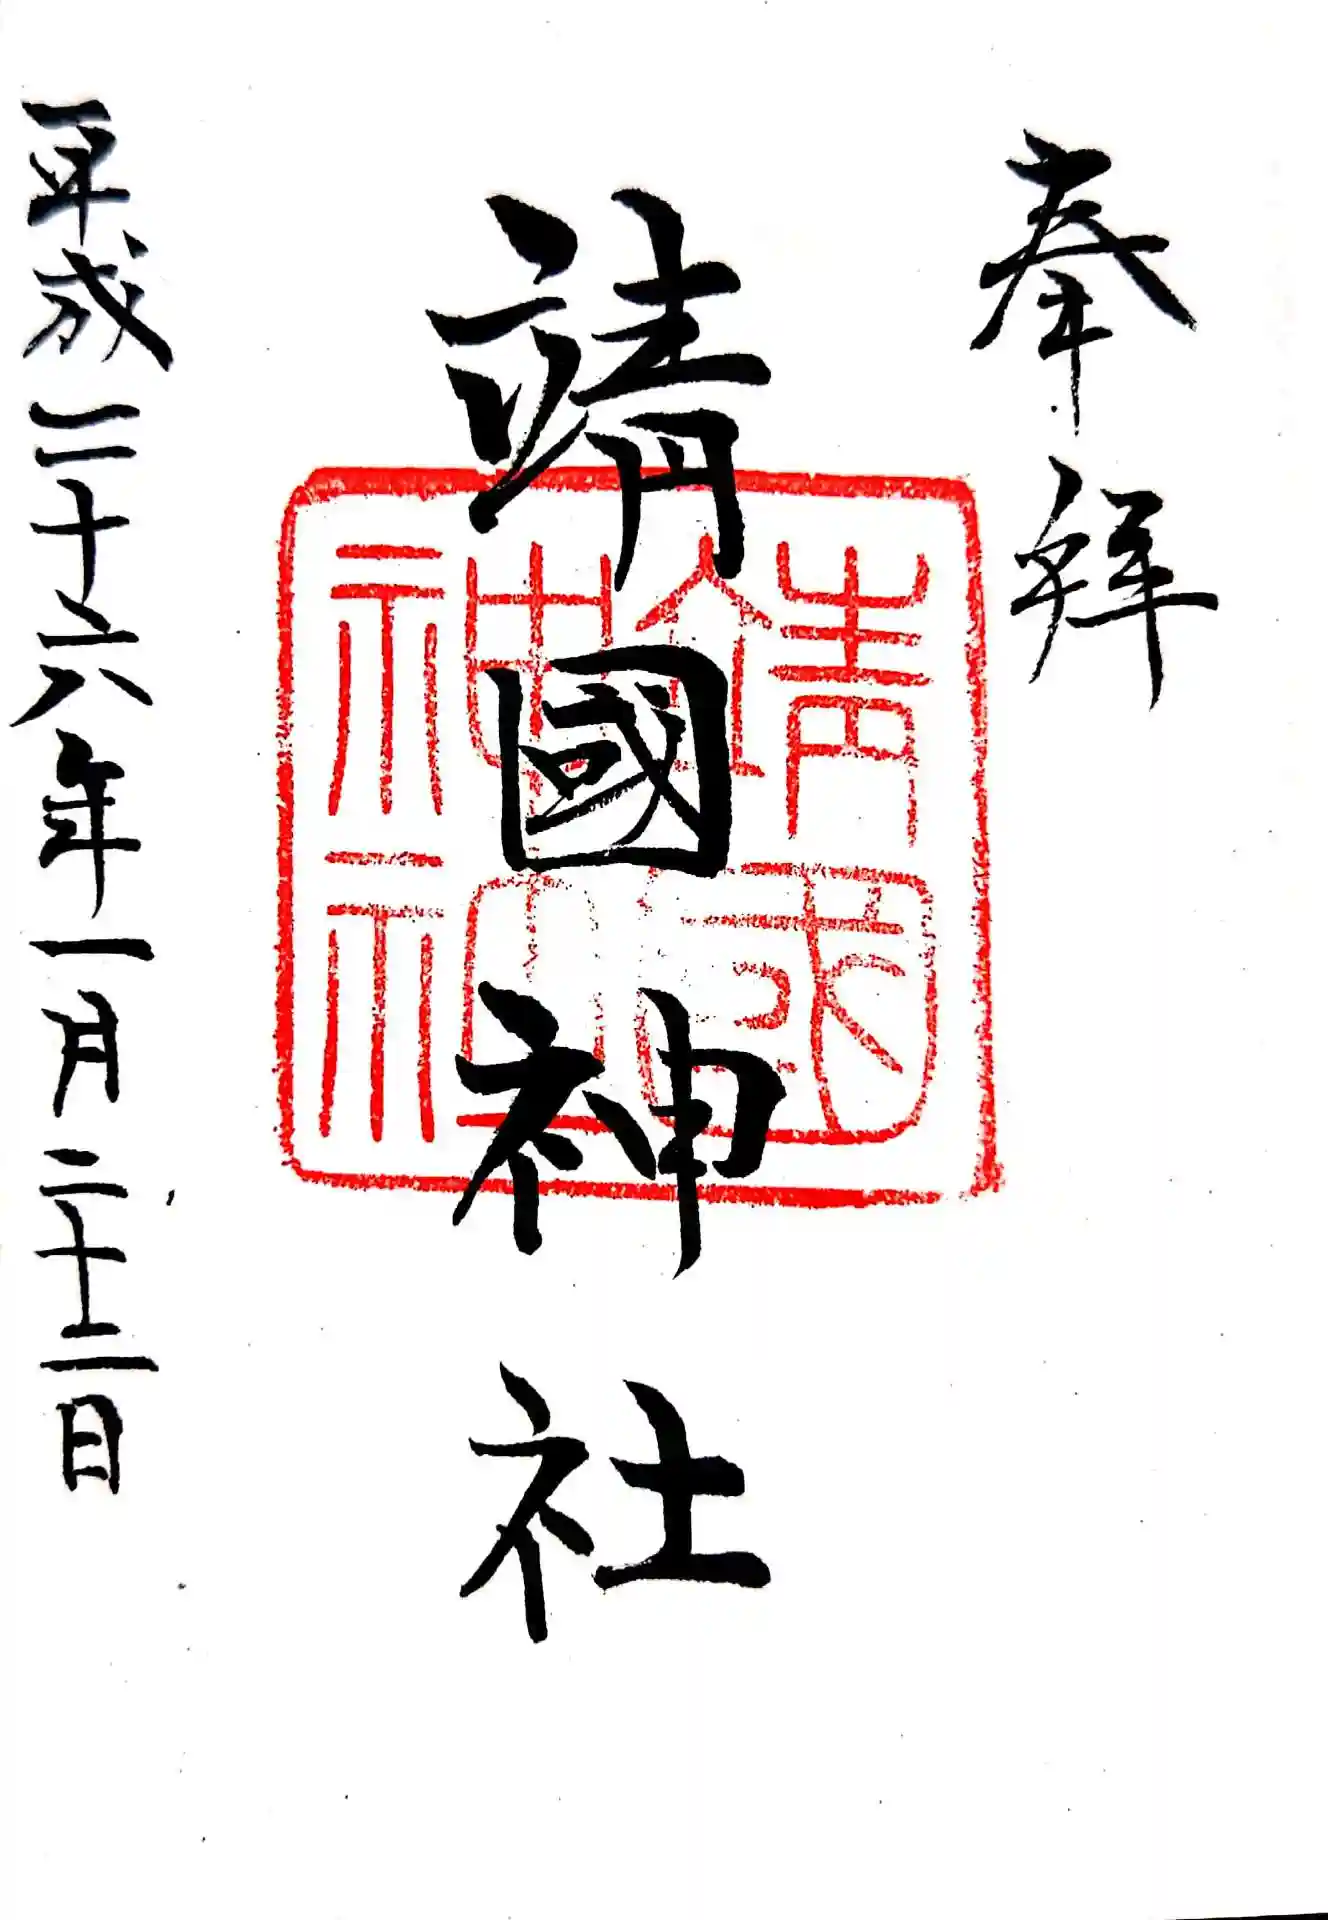 奉拜
靖國神社
靖國
神社
平成二十六年一月二十二日